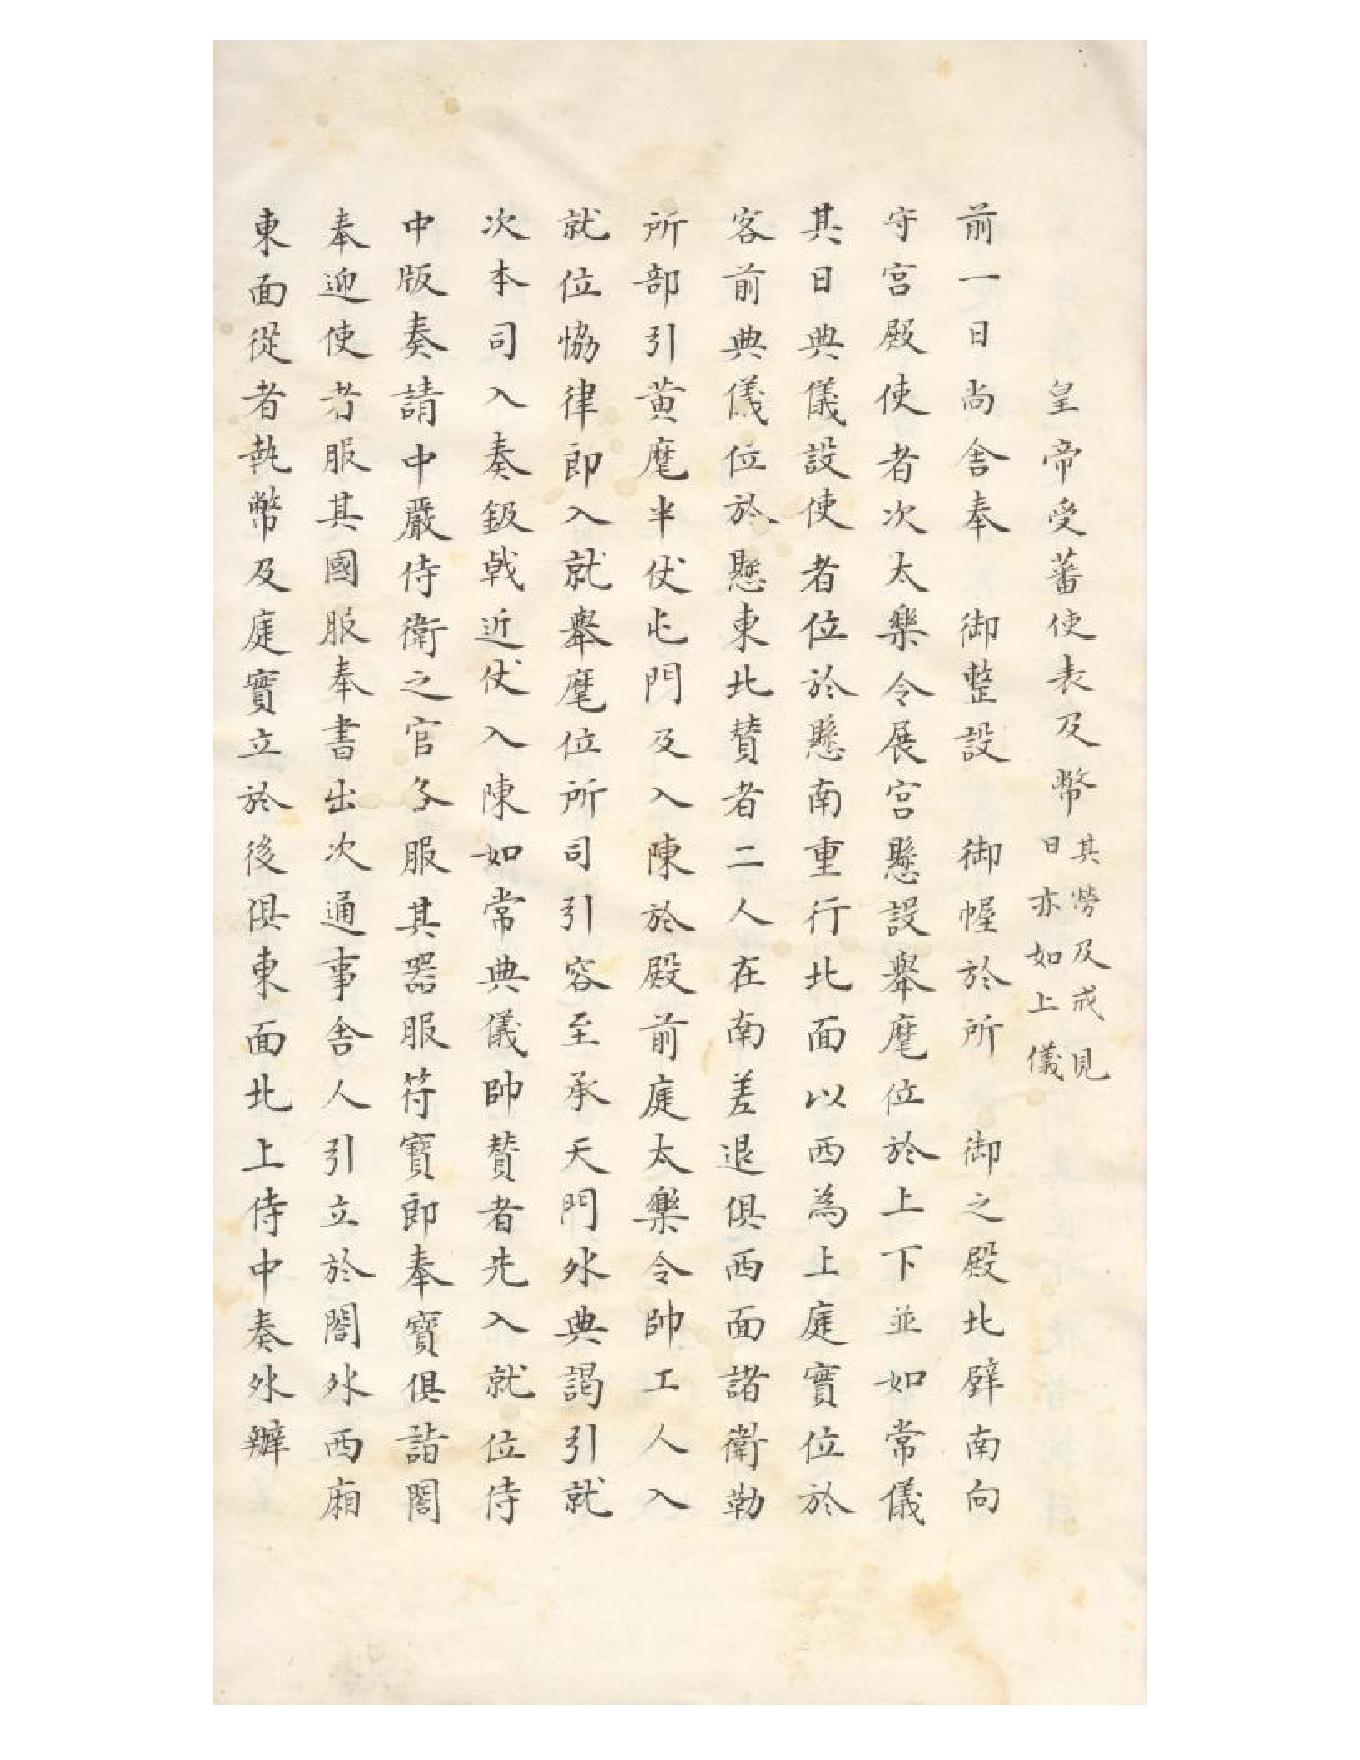 皇帝受蕃使表及幣其勞及戒見日亦如上儀
前一日尚舍奉 御整設 御幄於所 御之殿北壁南向
守宮殿使者次太樂令展宮懸設舉麾位於上下並如常儀
其日典儀設使者位於懸南重行北面以西為上庭實位於
客前典儀位於懸東北贊者二人在南差退俱西面諸衛勒
所部引黃麾半仗屯門及入陳於殿前庭太樂令帥工人入
就位恊律郎入就舉麾位所司引容至承天門外典謁引就
次本司入奏鈒戟近仗入陳如常典儀帥贊者先入就位侍
中版奏請中嚴侍衛之官各服其器服符寶郎奉寶俱詣閤
奉迎使者服其國服奉書出次通事舍人引立於閤外西廂
東面從者執幣及庭實立於後俱東面北上侍中奏外辦